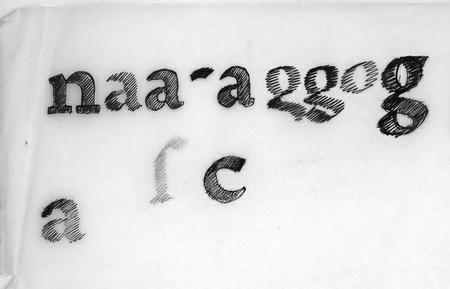 naa-aggog
ſc
a